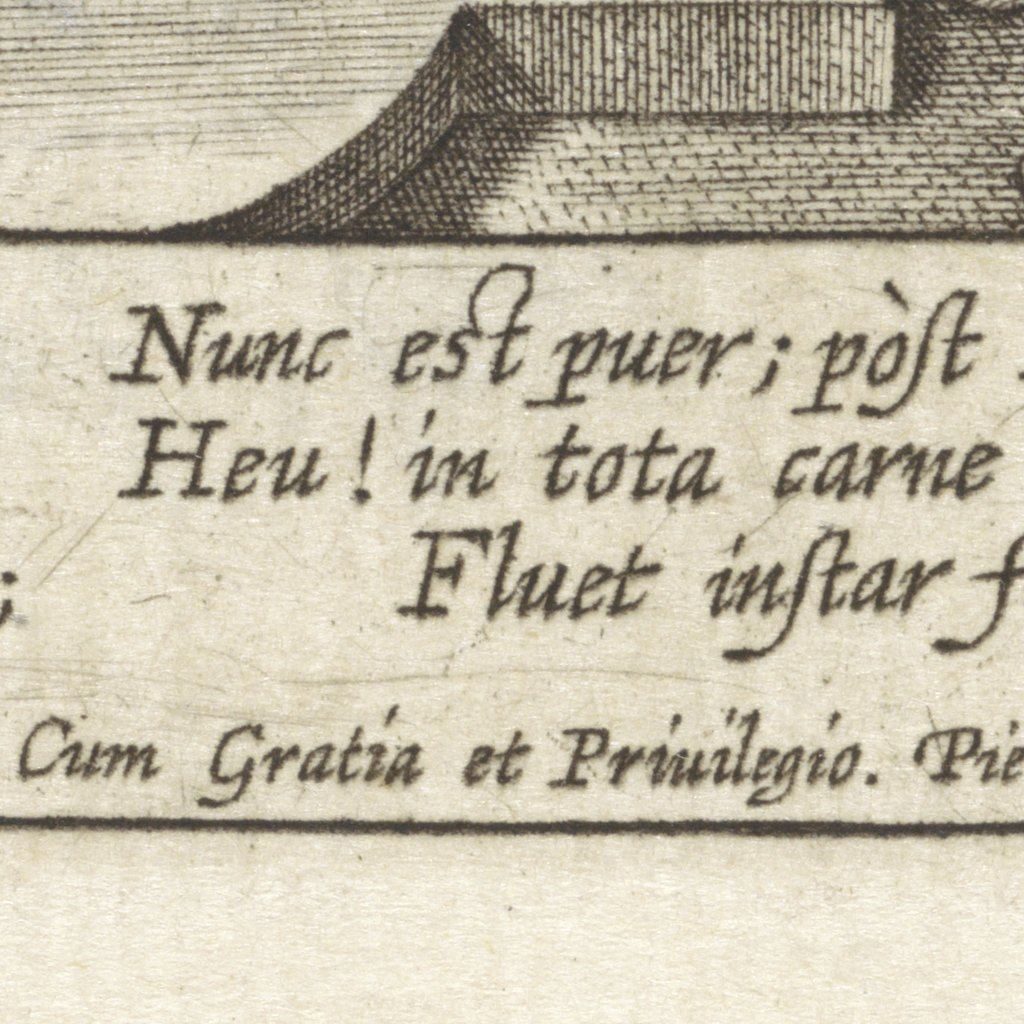 Nunc est puer; pòſt
Heu! in tota carne
; Fluet inſtar
Cum Gratia et Priuilegio.